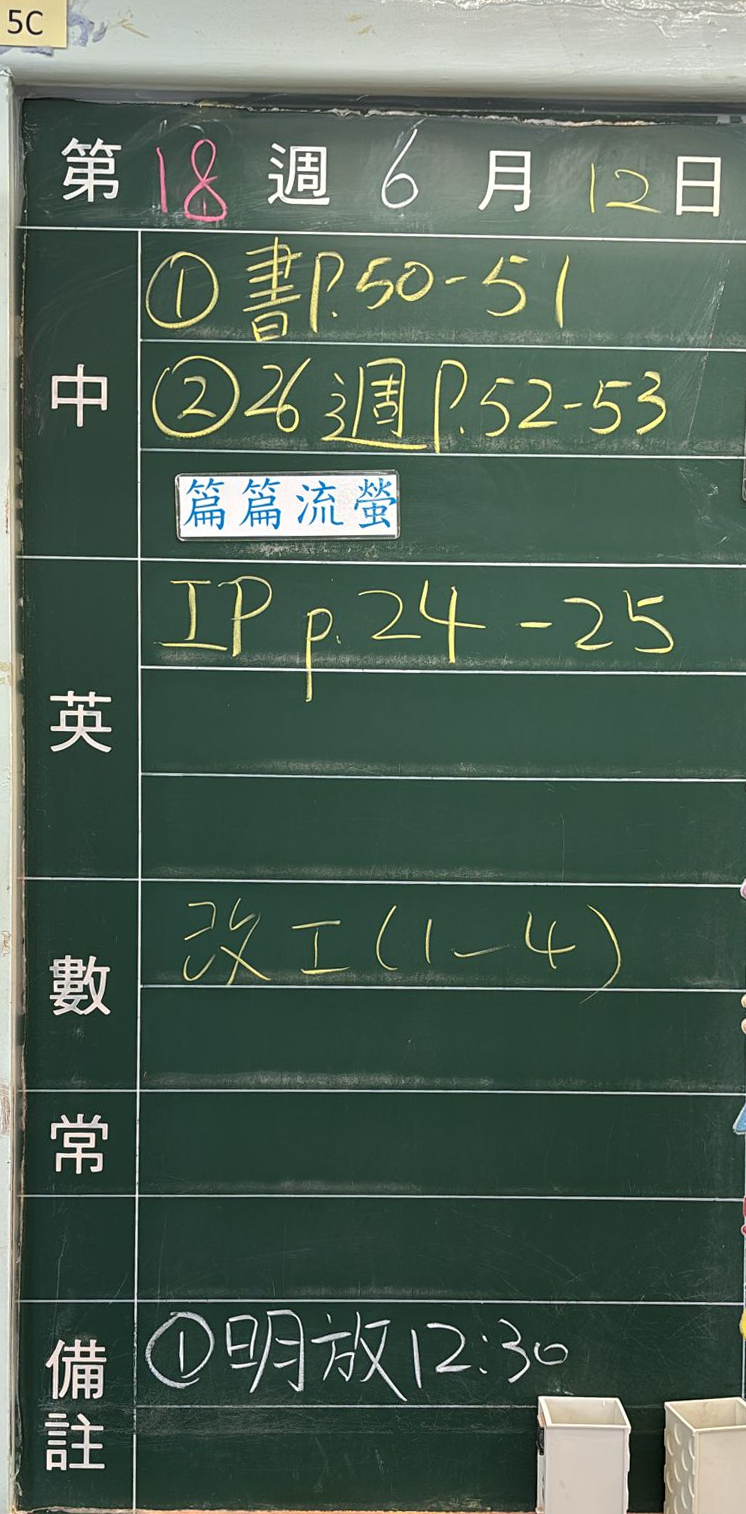 5C
第 18 週 6 月 12 日
中
① 書P.50-51
② 26週P.52-53
篇篇流螢
英
IP p.24-25
數
改工(1-4)
常
備註
① 明放12:30